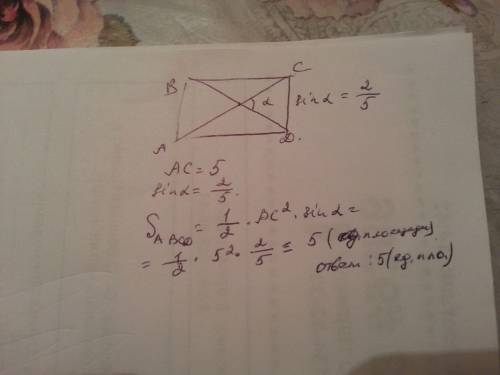 B C
α sin α = 2/5
A D.
AC = 5
sin α = 2/5.
S ABCD = 1/2 · AC² · sin α =
= 1/2 · 5² · 2/5 = 5 (ед. площади)
ответ: 5 (ед. пло.)